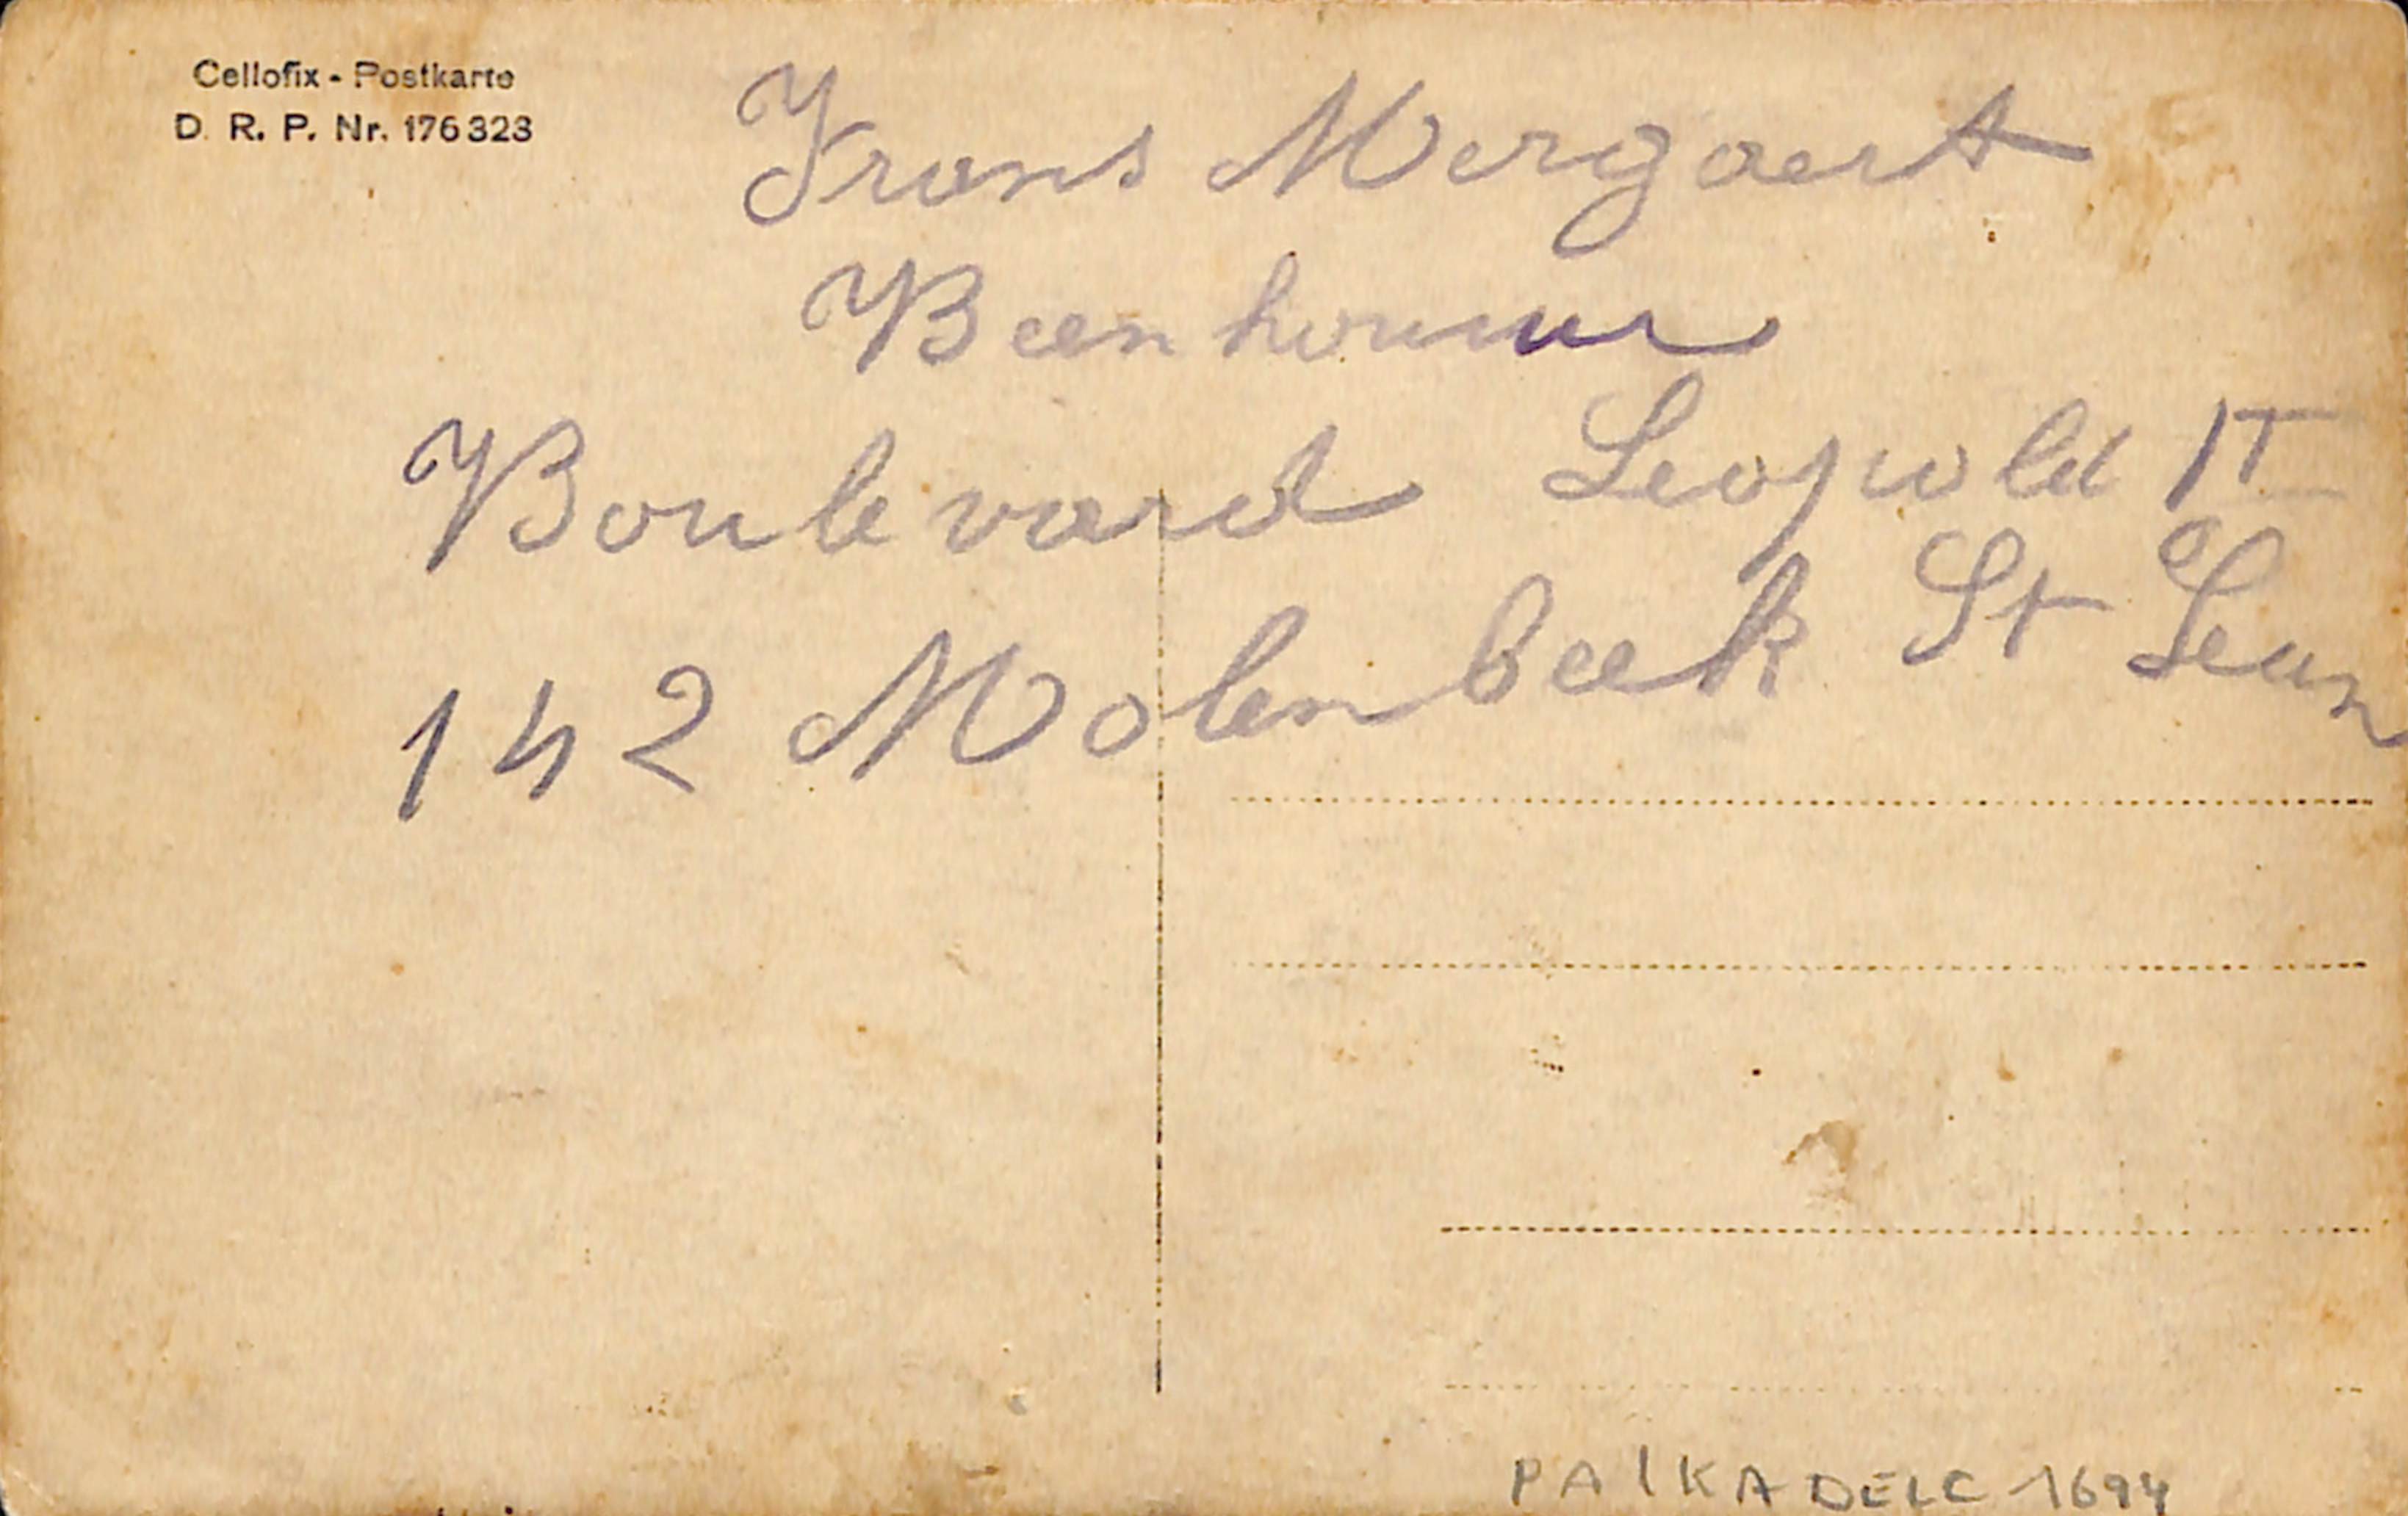 Cellofix - Postkarte
D. R. P. Nr. 176323
Frans Mergaert
Beenhouwer
Boulevard Leopold II
142 Molenbeek St Jean
PA/KADELC 1694